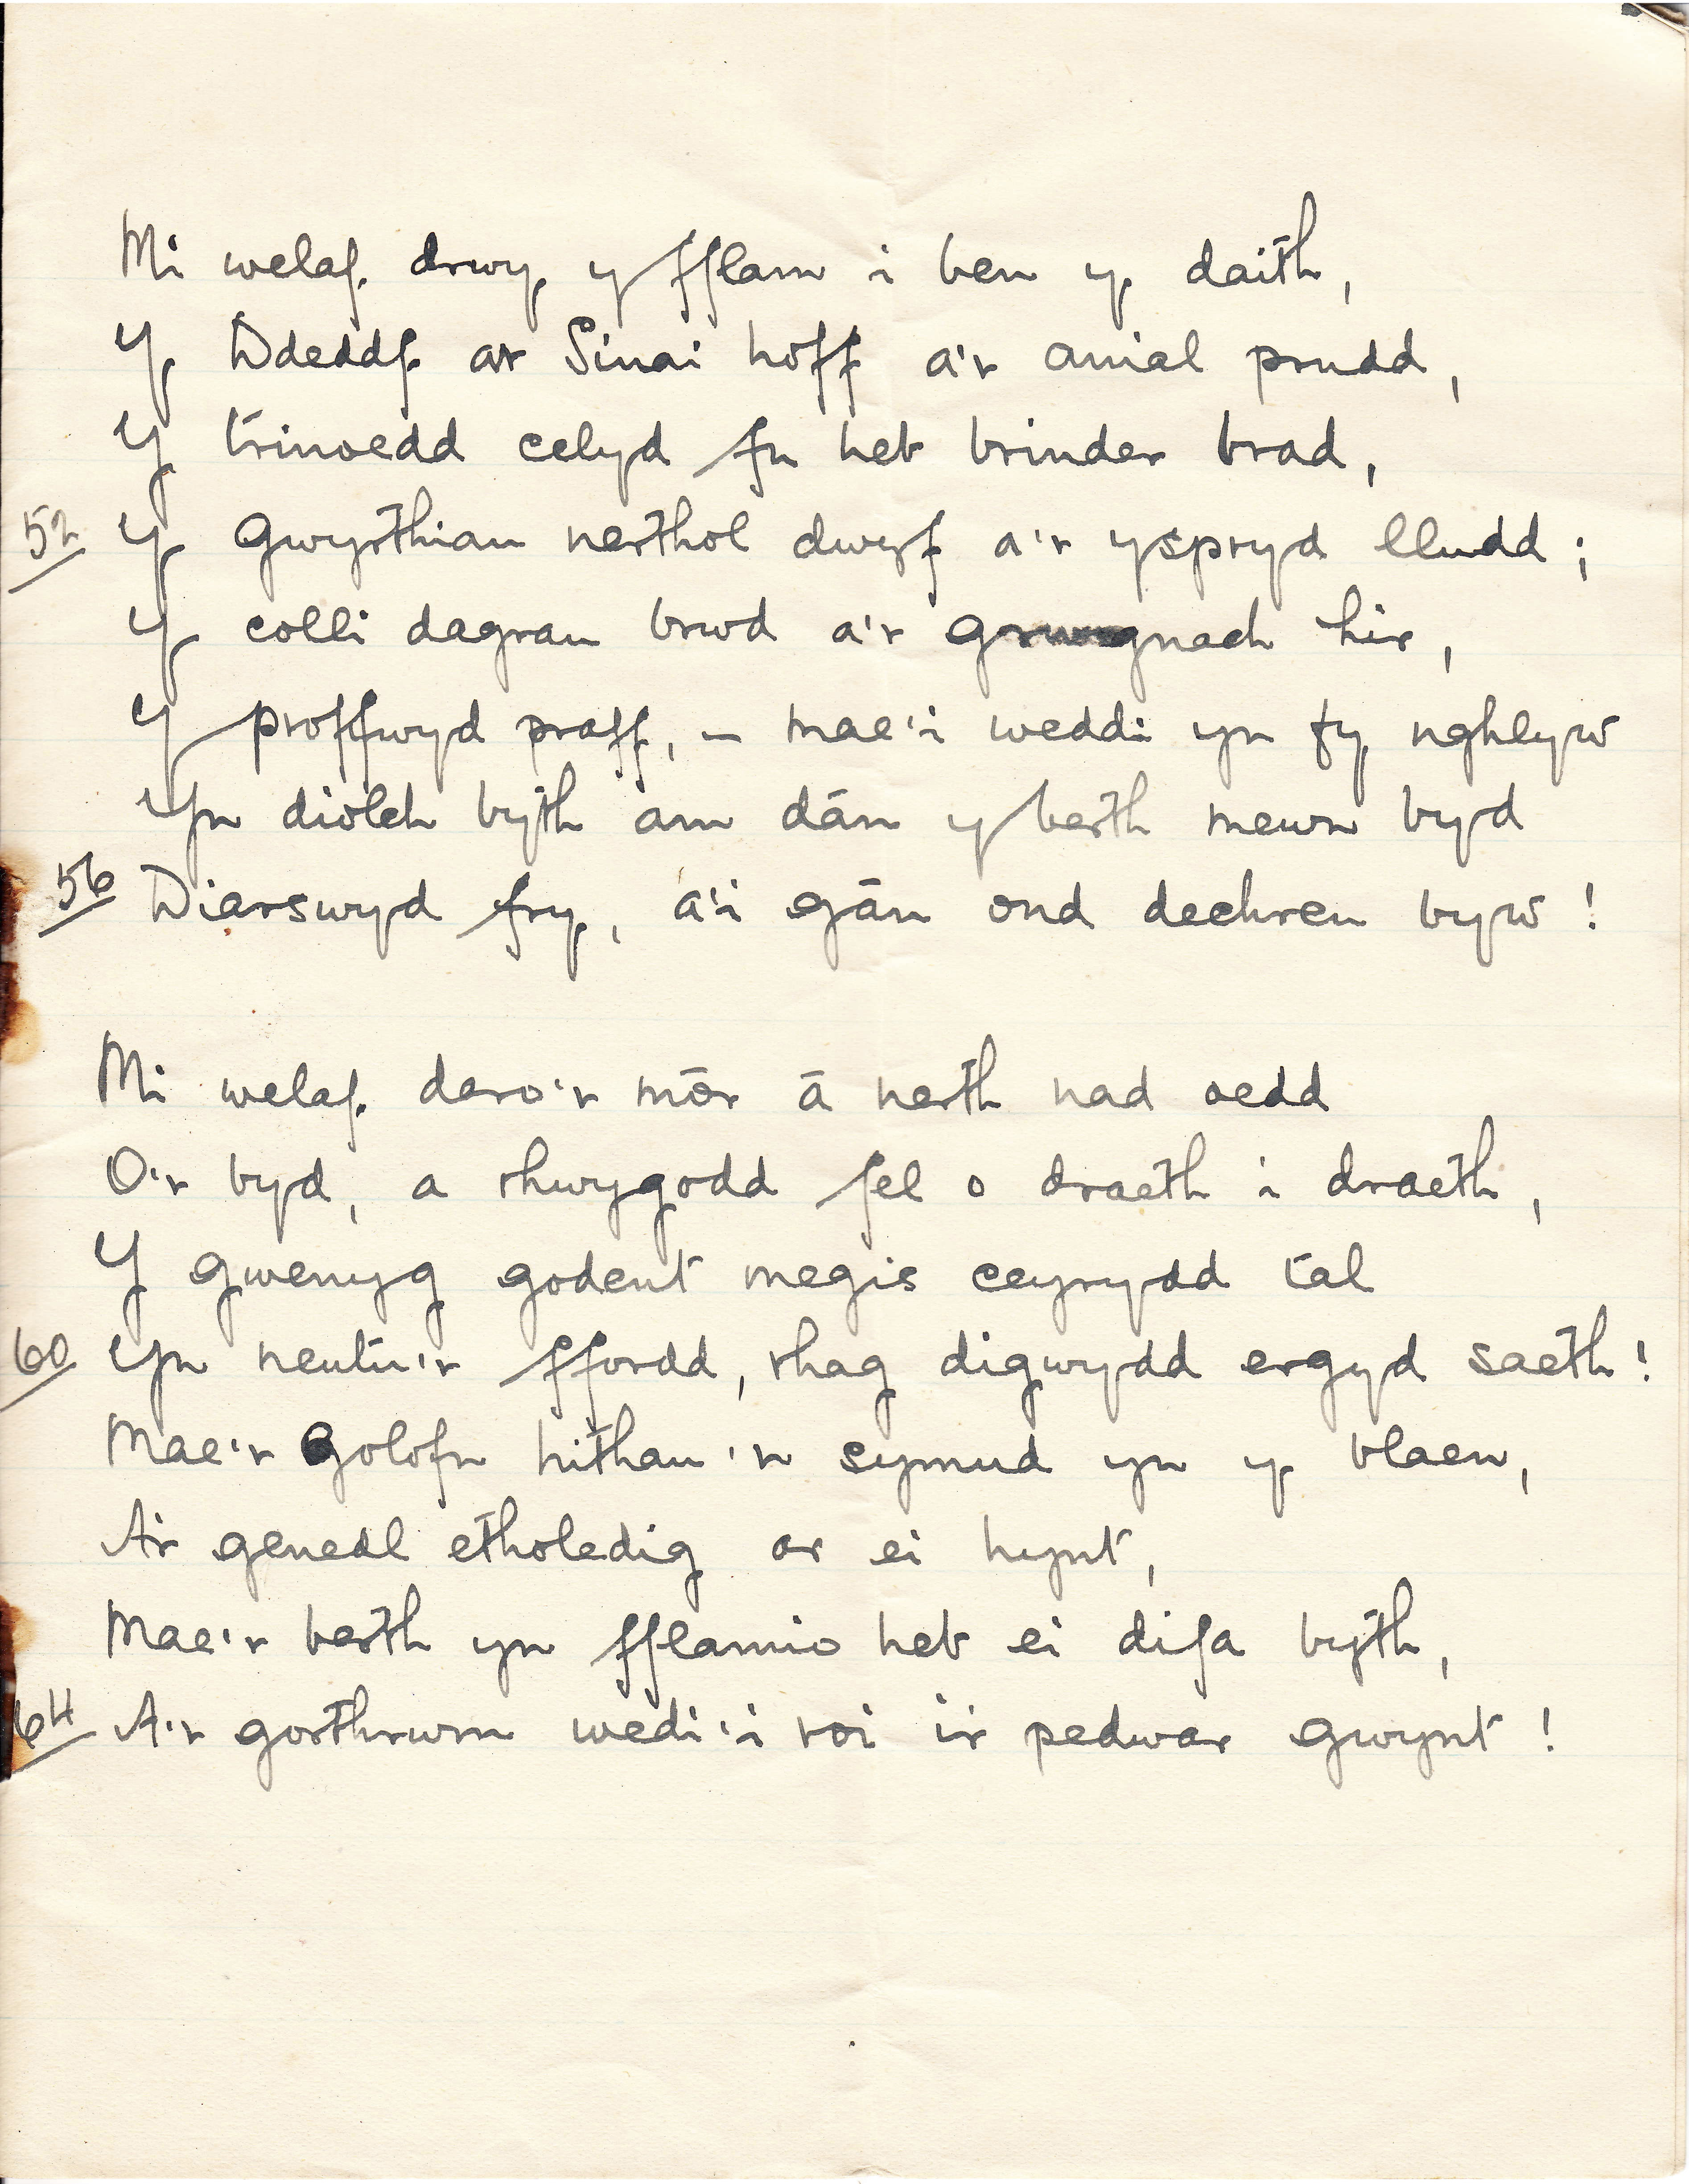 Mi welaf drwy y fflam i ben y daith,
Y Ddeddf ar Sinai hoff a'r anial prudd,
Y trinoedd celyd fu heb brinder brad,
52 Y gwyrthiau nerthol dwyf a'r yspryd lludd;
Y colli dagrau brwd a'r grwgnach hir,
Y proffwyd praff, – mae'i weddi yn fy nghlyw
Yn diolch byth am dân y berth mewn byd
56 Diarswyd fry, a'i gân ond dechreu byw!
Mi welaf daro'r môr â nerth nad oedd
O'r byd, a rhwygodd fel o draeth i draeth,
Y gwenyg godent megis ceyrydd tal
60 Yn neutu'r ffordd, rhag digwydd ergyd saeth!
Mae'r Golofn hithau'n symud yn y blaen,
A'r genedl etholedig ar ei hynt,
Mae'r berth yn fflamio heb ei difa byth,
64 A'r gorthrwm wedi'i roi i'r pedwar gwynt!